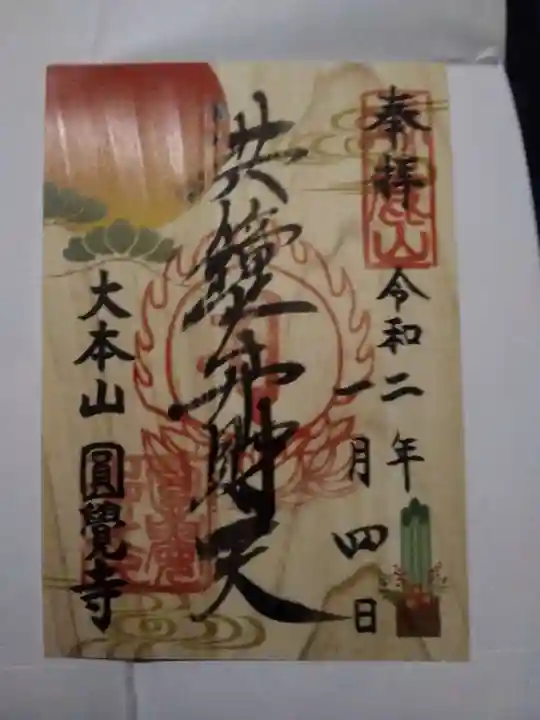 奉拝
令和二年
一月四日
洪鐘弁財天
大本山圓覺寺